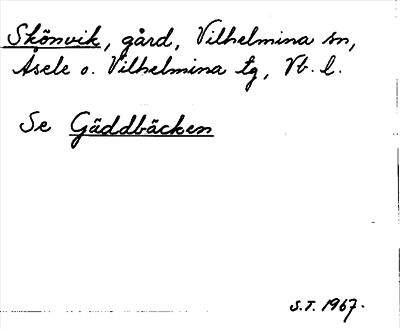 Skönvik, gård, Vilhelmina sn,
Åsele o. Vilhelmina tg, Vb. l.
Se Gäddbäcken
S.T. 1967.